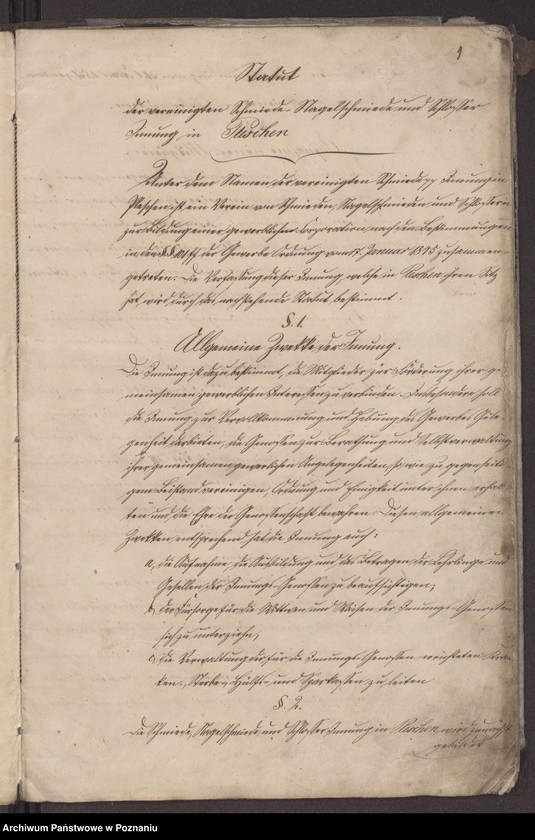 9
Statut
der vereinigten Schmiede Nagelschmiede und Schlosser
Innung in Pleschen
Unter dem Namen der vereinigten Schmiede pp Innung in
Pleschen ist ein Verein von Schmieden, Nagelschmieden und Schlossern
zur Bildung einer gewerblichen Corporation nach den Bestimmungen
in den §§ 101 ff der Gewerbe Ordnung vom 17. Januar 1845 zusammen-
getreten. Die Verfassung dieser Innung, welche in Pleschen ihren Sitz
hat, wird durch das nachstehende Statut bestimmt.
§. 1.
Allgemeine Zwekke der Innung.
Die Innung ist dazu bestimmt, die Mitglieder zur Förderung ihrer ge-
meinsamen gewerblichen Interessen zu verbinden. Insbesondere soll
die Innung zur Vervollkommnung und Hebung des Gewerbes Gele-
genheit darbieten, die Genossen zur Berathung und Selbstverwaltung
ihrer gemeinsamen gewerblichen Angelegenheiten, so wie zu gegenseiti-
gem Beistand vereinigen, Ordnung und Einigkeit unter ihnen erhal-
ten und die Ehre der Genossenschaft bewahren. Diesen allgemeinen
Zwekken entsprechend hat die Innung auch:
a, die Aufnahme, die Ausbildung und das Betragen der Lehrlinge und
Gesellen der Innungs-Genossen zu beaufsichtigen;
b, der Fürsorge für die Wittwen und Waisen der Innungs-Genossen
sich zu unterziehn,
c, die Verwaltung der für die Innungs-Genossen errichteten Kran-
ken-, Sterbe-, Hülfs- und Sparkassen zu leiten
§. 2.
Die Schmiede, Nagelschmiede und Schlosser Innung in Pleschen wird zunächst
gebildet
Archiwum Państwowe w Poznaniu